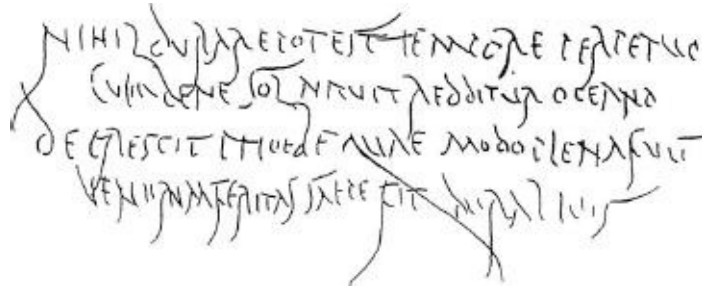 NIHIL DURARE POTEST TEMPORE PERPETUO
CUM BENE SOL NITUIT REDDITUR OCEANO
DECRESCIT PHOEBE QUAE MODO PLENA FUIT
FERITAS SAEPE FIT AURA LEVIS